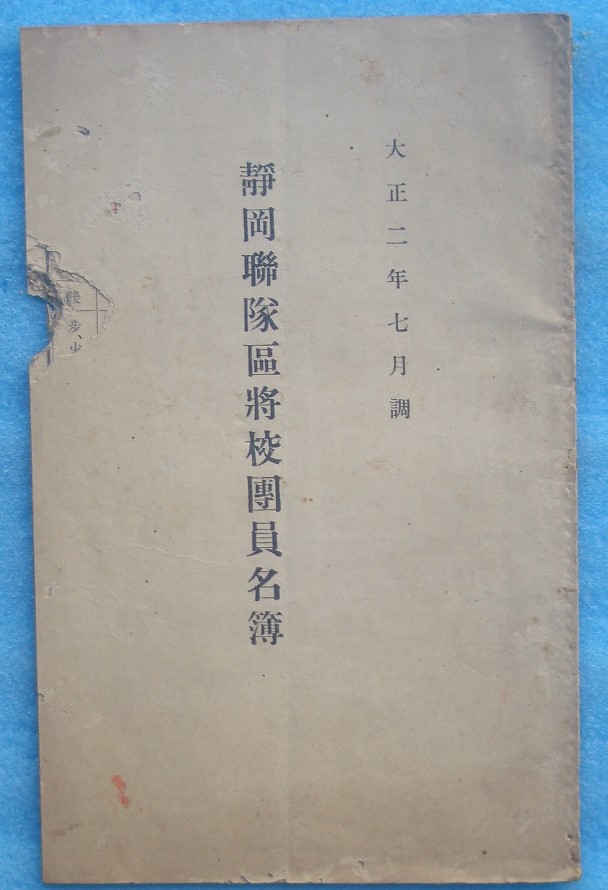 大正二年七月調
靜岡聯隊區將校團員名簿
後歩、少